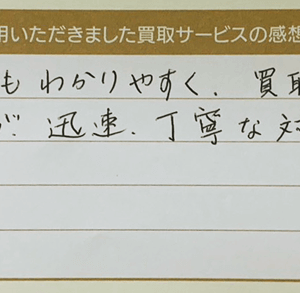 用いただきました買取サービスの感想
もわかりやすく、買取
が、迅速、丁寧な対